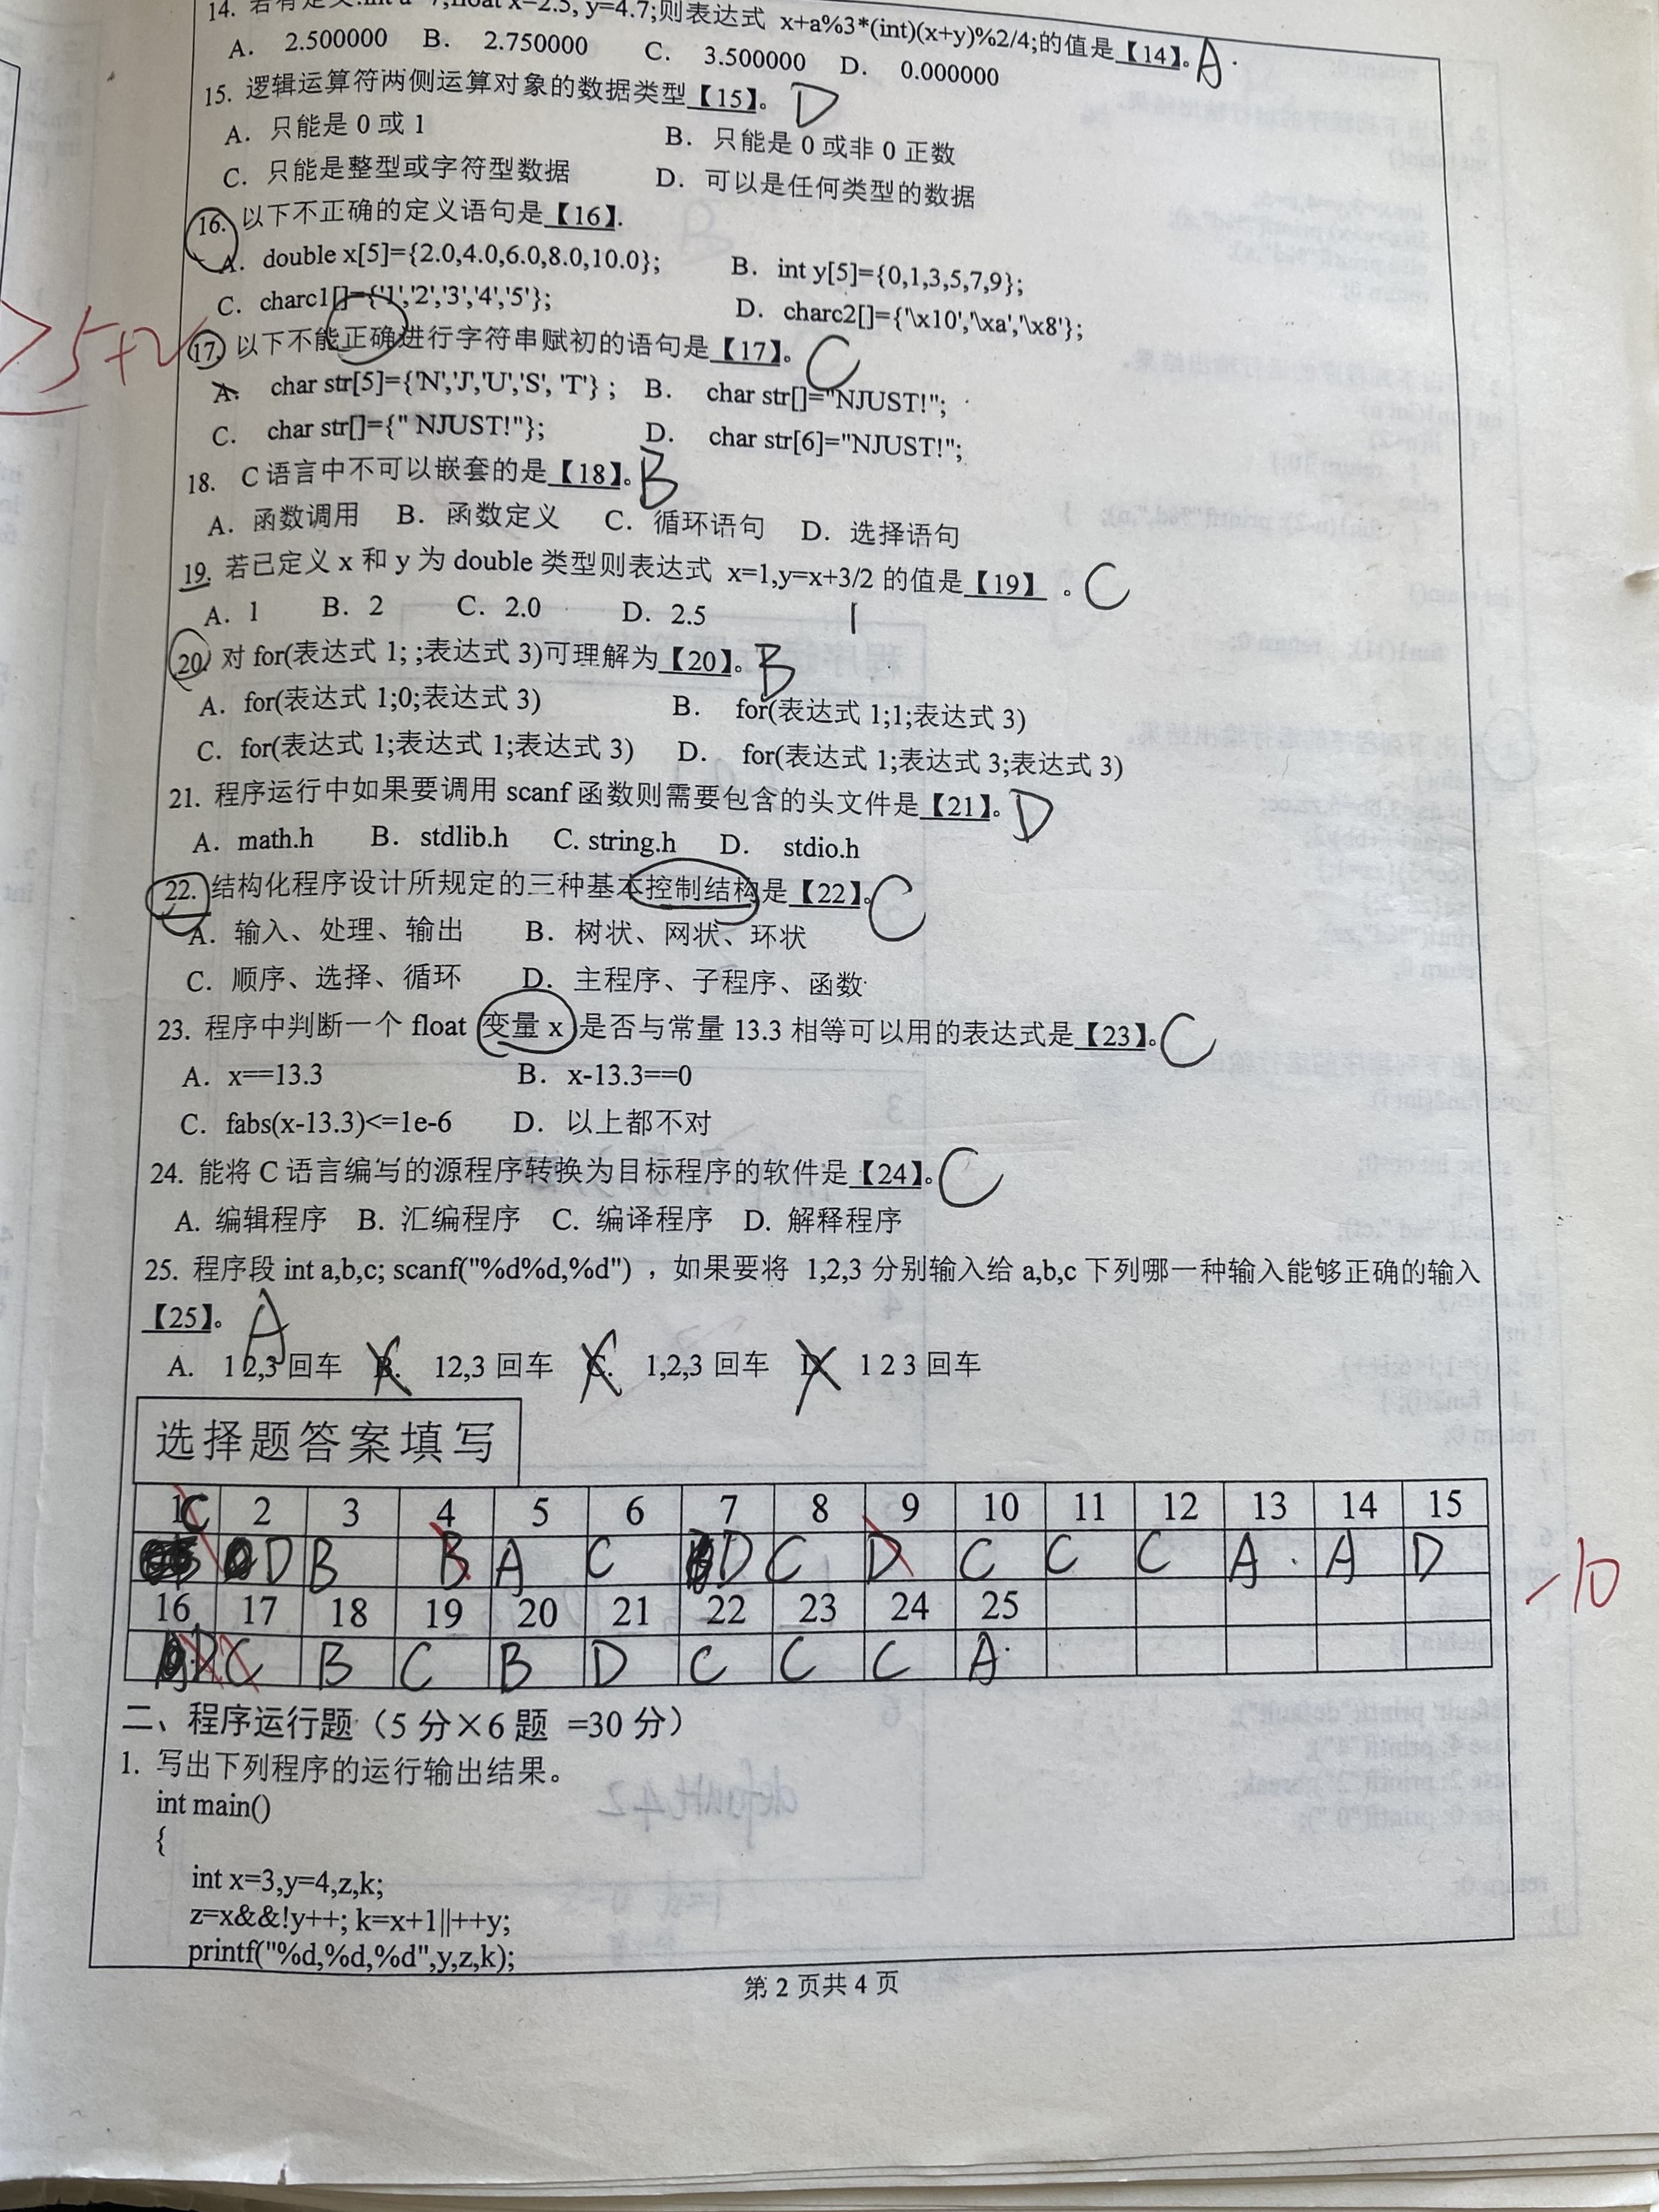 14. 若有定义:int a=7;float x=2.5, y=4.7;则表达式 x+a%3*(int)(x+y)%2/4;的值是【14】。A.
A. 2.500000 B. 2.750000 C. 3.500000 D. 0.000000
15. 逻辑运算符两侧运算对象的数据类型【15】。D
A. 只能是 0 或 1 B. 只能是 0 或非 0 正数
C. 只能是整型或字符型数据 D. 可以是任何类型的数据
16. 以下不正确的定义语句是【16】.
A. double x[5]={2.0,4.0,6.0,8.0,10.0}; B. int y[5]={0,1,3,5,7,9};
C. charc1[]={'1','2','3','4','5'}; D. charc2[]={'\x10','\xa','\x8'};
75+2
17. 以下不能正确进行字符串赋初的语句是【17】。C
A. char str[5]={'N','J','U','S', 'T'} ; B. char str[]="NJUST!";
C. char str[]={" NJUST!"}; D. char str[6]="NJUST!";
18. C 语言中不可以嵌套的是【18】。B
A. 函数调用 B. 函数定义 C. 循环语句 D. 选择语句
19. 若已定义 x 和 y 为 double 类型则表达式 x=1,y=x+3/2 的值是【19】 。C
A. 1 B. 2 C. 2.0 D. 2.5 1
20. 对 for(表达式 1; ;表达式 3)可理解为【20】。B
A. for(表达式 1;0;表达式 3) B. for(表达式 1;1;表达式 3)
C. for(表达式 1;表达式 1;表达式 3) D. for(表达式 1;表达式 3;表达式 3)
21. 程序运行中如果要调用 scanf 函数则需要包含的头文件是【21】。D
A. math.h B. stdlib.h C. string.h D. stdio.h
22. 结构化程序设计所规定的三种基本控制结构是【22】。C
A. 输入、处理、输出 B. 树状、网状、环状
C. 顺序、选择、循环 D. 主程序、子程序、函数
23. 程序中判断一个 float 变量 x 是否与常量 13.3 相等可以用的表达式是【23】。C
A. x==13.3 B. x-13.3==0
C. fabs(x-13.3)<=1e-6 D. 以上都不对
24. 能将 C 语言编写的源程序转换为目标程序的软件是【24】。C
A. 编辑程序 B. 汇编程序 C. 编译程序 D. 解释程序
25. 程序段 int a,b,c; scanf("%d%d,%d") ，如果要将 1,2,3 分别输入给 a,b,c 下列哪一种输入能够正确的输入
【25】。A
A. 1 2,3 回车 B. 12,3 回车 C. 1,2,3 回车 D. 1 2 3 回车
选择题答案填写
1 C 2 3 4 5 6 7 8 9 10 11 12 13 14 15
D B B A C D C D C C C A. A D
-10
16 17 18 19 20 21 22 23 24 25
D C B C B D C C C A.
二、程序运行题（5 分×6 题 =30 分）
1. 写出下列程序的运行输出结果。
int main()
{
int x=3,y=4,z,k;
z=x&&!y++; k=x+1||++y;
printf("%d,%d,%d",y,z,k);
第 2 页共 4 页